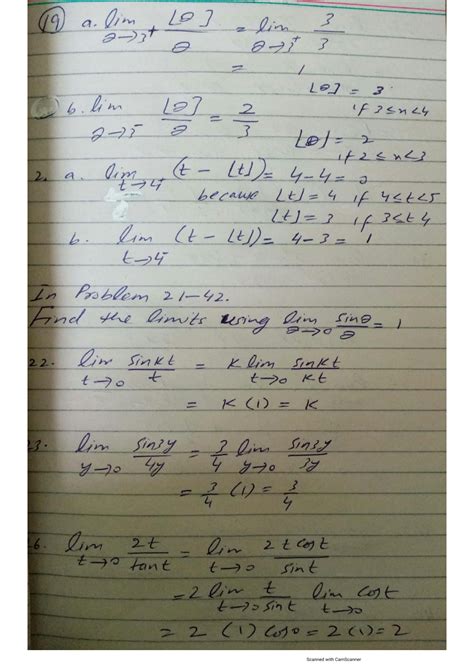 (19) a. lim θ→3⁺ ⌊θ⌋/θ = lim θ→3⁺ 3/3
= 1
⌊θ⌋ = 3
if 3≤x<4
b. lim θ→3⁻ ⌊θ⌋/θ = 2/3
⌊θ⌋ = 2
if 2≤x<3
2. a. lim t→4⁺ (t - ⌊t⌋) = 4-4 = 0
because ⌊t⌋ = 4 if 4<t<5
⌊t⌋ = 3 if 3≤t 4
b. lim t→4⁻ (t - ⌊t⌋) = 4-3 = 1
In Problem 21-42.
Find the limits using lim θ→0 sinθ/θ = 1
22. lim t→0 sinkt/t = k lim t→0 sinkt/kt
= k (1) = k
23. lim y→0 sin3y/4y = 3/4 lim y→0 sin3y/3y
= 3/4 (1) = 3/4
26. lim t→0 2t/tant = lim t→0 2t cost/sint
= 2 lim t→0 t/sint lim t→0 cost
= 2 (1) cos0 = 2(1) = 2
Scanned with CamScanner